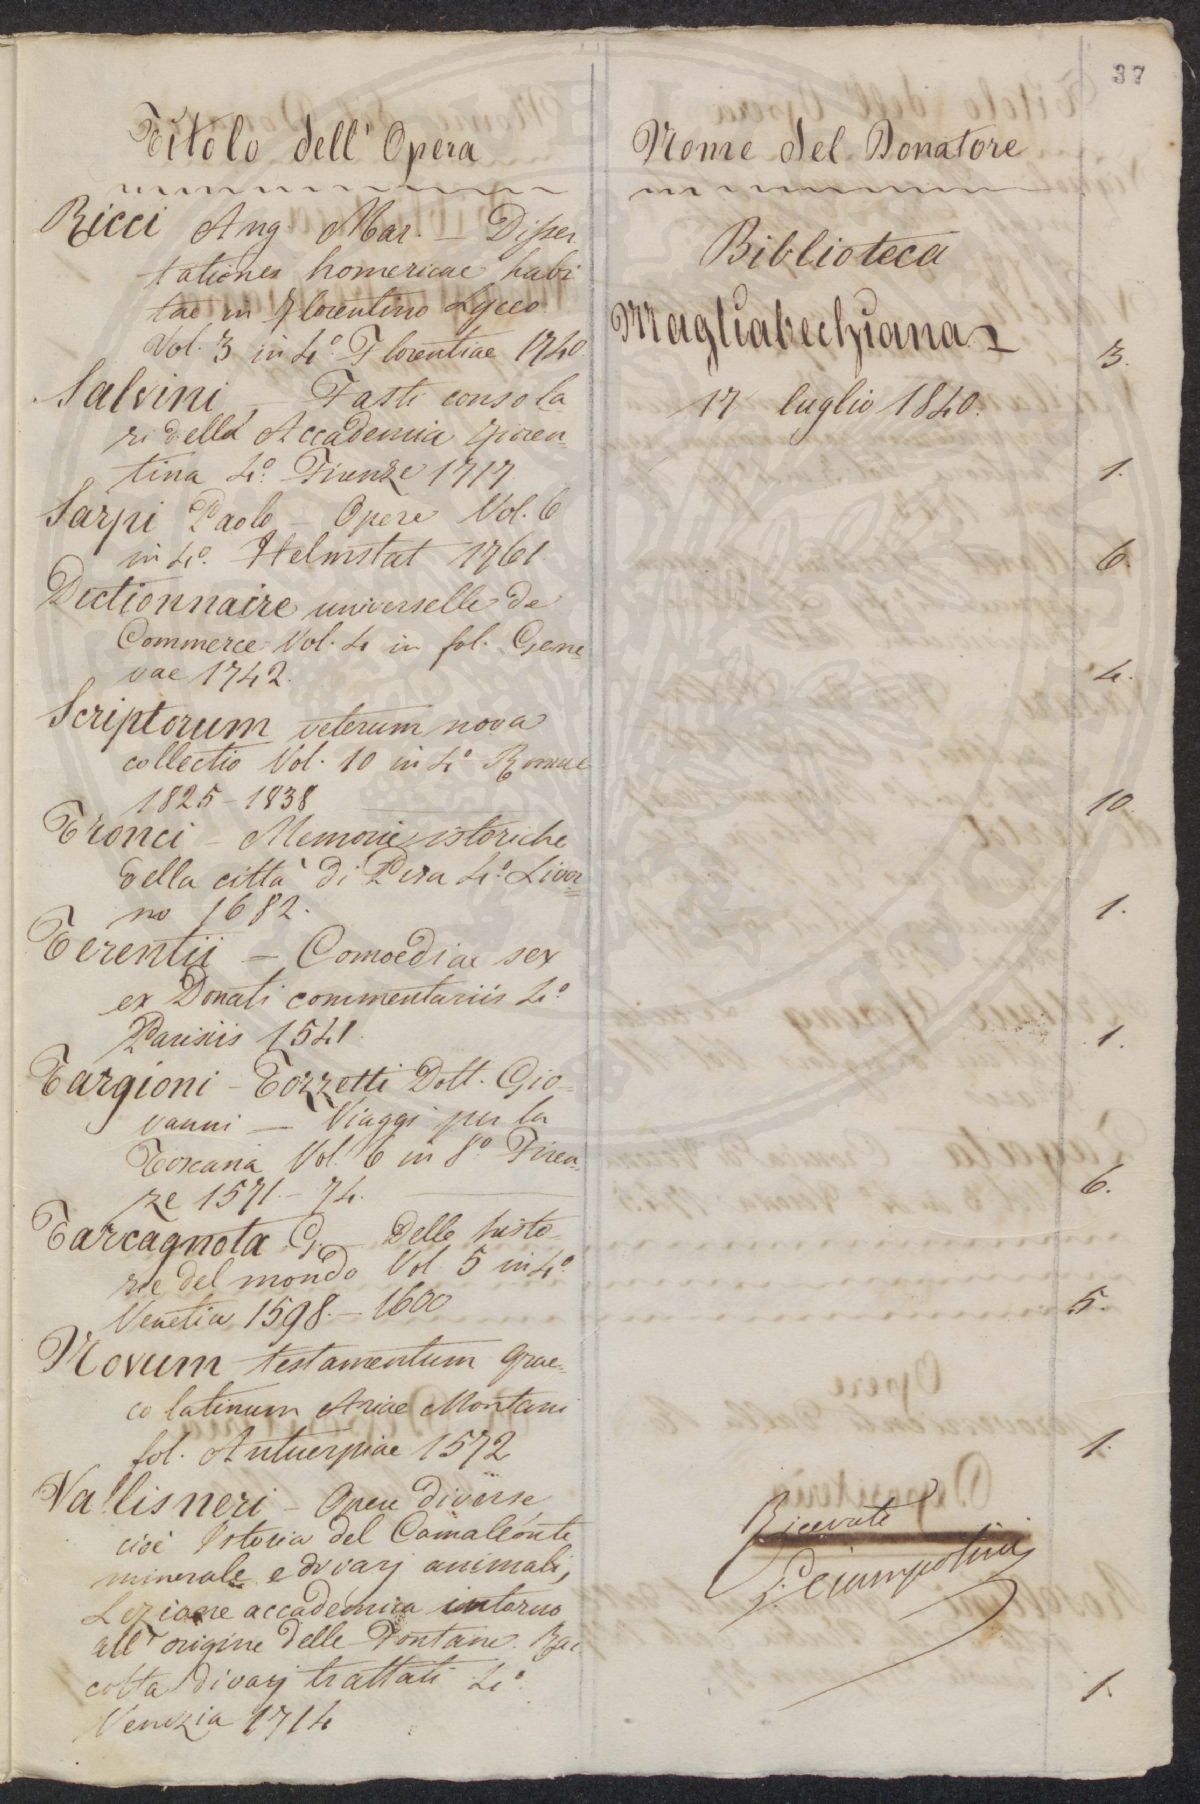 37
Titolo dell' Opera
Ricci Ang Mar. — Disser
tationes homericae habi
tae in Florentino Lyceo
Vol. 3 in 4.° Florentiae 1740
3.
Salvini — Fasti consola
ri della Accademia fioren-
tina 4.° Firenze 1717
1.
Sarpi Paolo — Opere Vol. 6
in 4.° Helmstat 1761
6.
Dictionnaire universelle de
Commerce Vol. 4 in fol. Gene
vae 1742.
4.
Scriptorum veterum nova
collectio Vol. 10 in 4.° Romae
1825 - 1838
10.
Tronci — Memorie istoriche
della città di Pisa 4.° Livor=
no 1682.
1.
Terentii — Comoediae sex
ex Donati commentariis 4.°
Parisiis 1541
1.
Targioni - Tozzetti Dott. Gio-
vanni — Viaggi per la
Toscana Vol. 6 in 8.° Firen-
ze 1571. - 74.
6.
Tarcagnota G. — Delle histo-
rie del mondo Vol. 5 in 4.°
Venetia 1598. — 1600
5.
Novum testamentum grae-
co latinum Ariae Montani
fol. Antuerpiae 1572
1.
Vallisneri — Opere diverse
cioè Istoria del Camaleonte
minerale e di varj animali,
Lezione accademica intorno
all' origine delle Fontane. Rac
colta di varj trattati 4.°
Venezia 1714
1.
Nome del Donatore
Biblioteca
Magliabechiana
17 luglio 1840.
Ricevute
G. Ciampolini